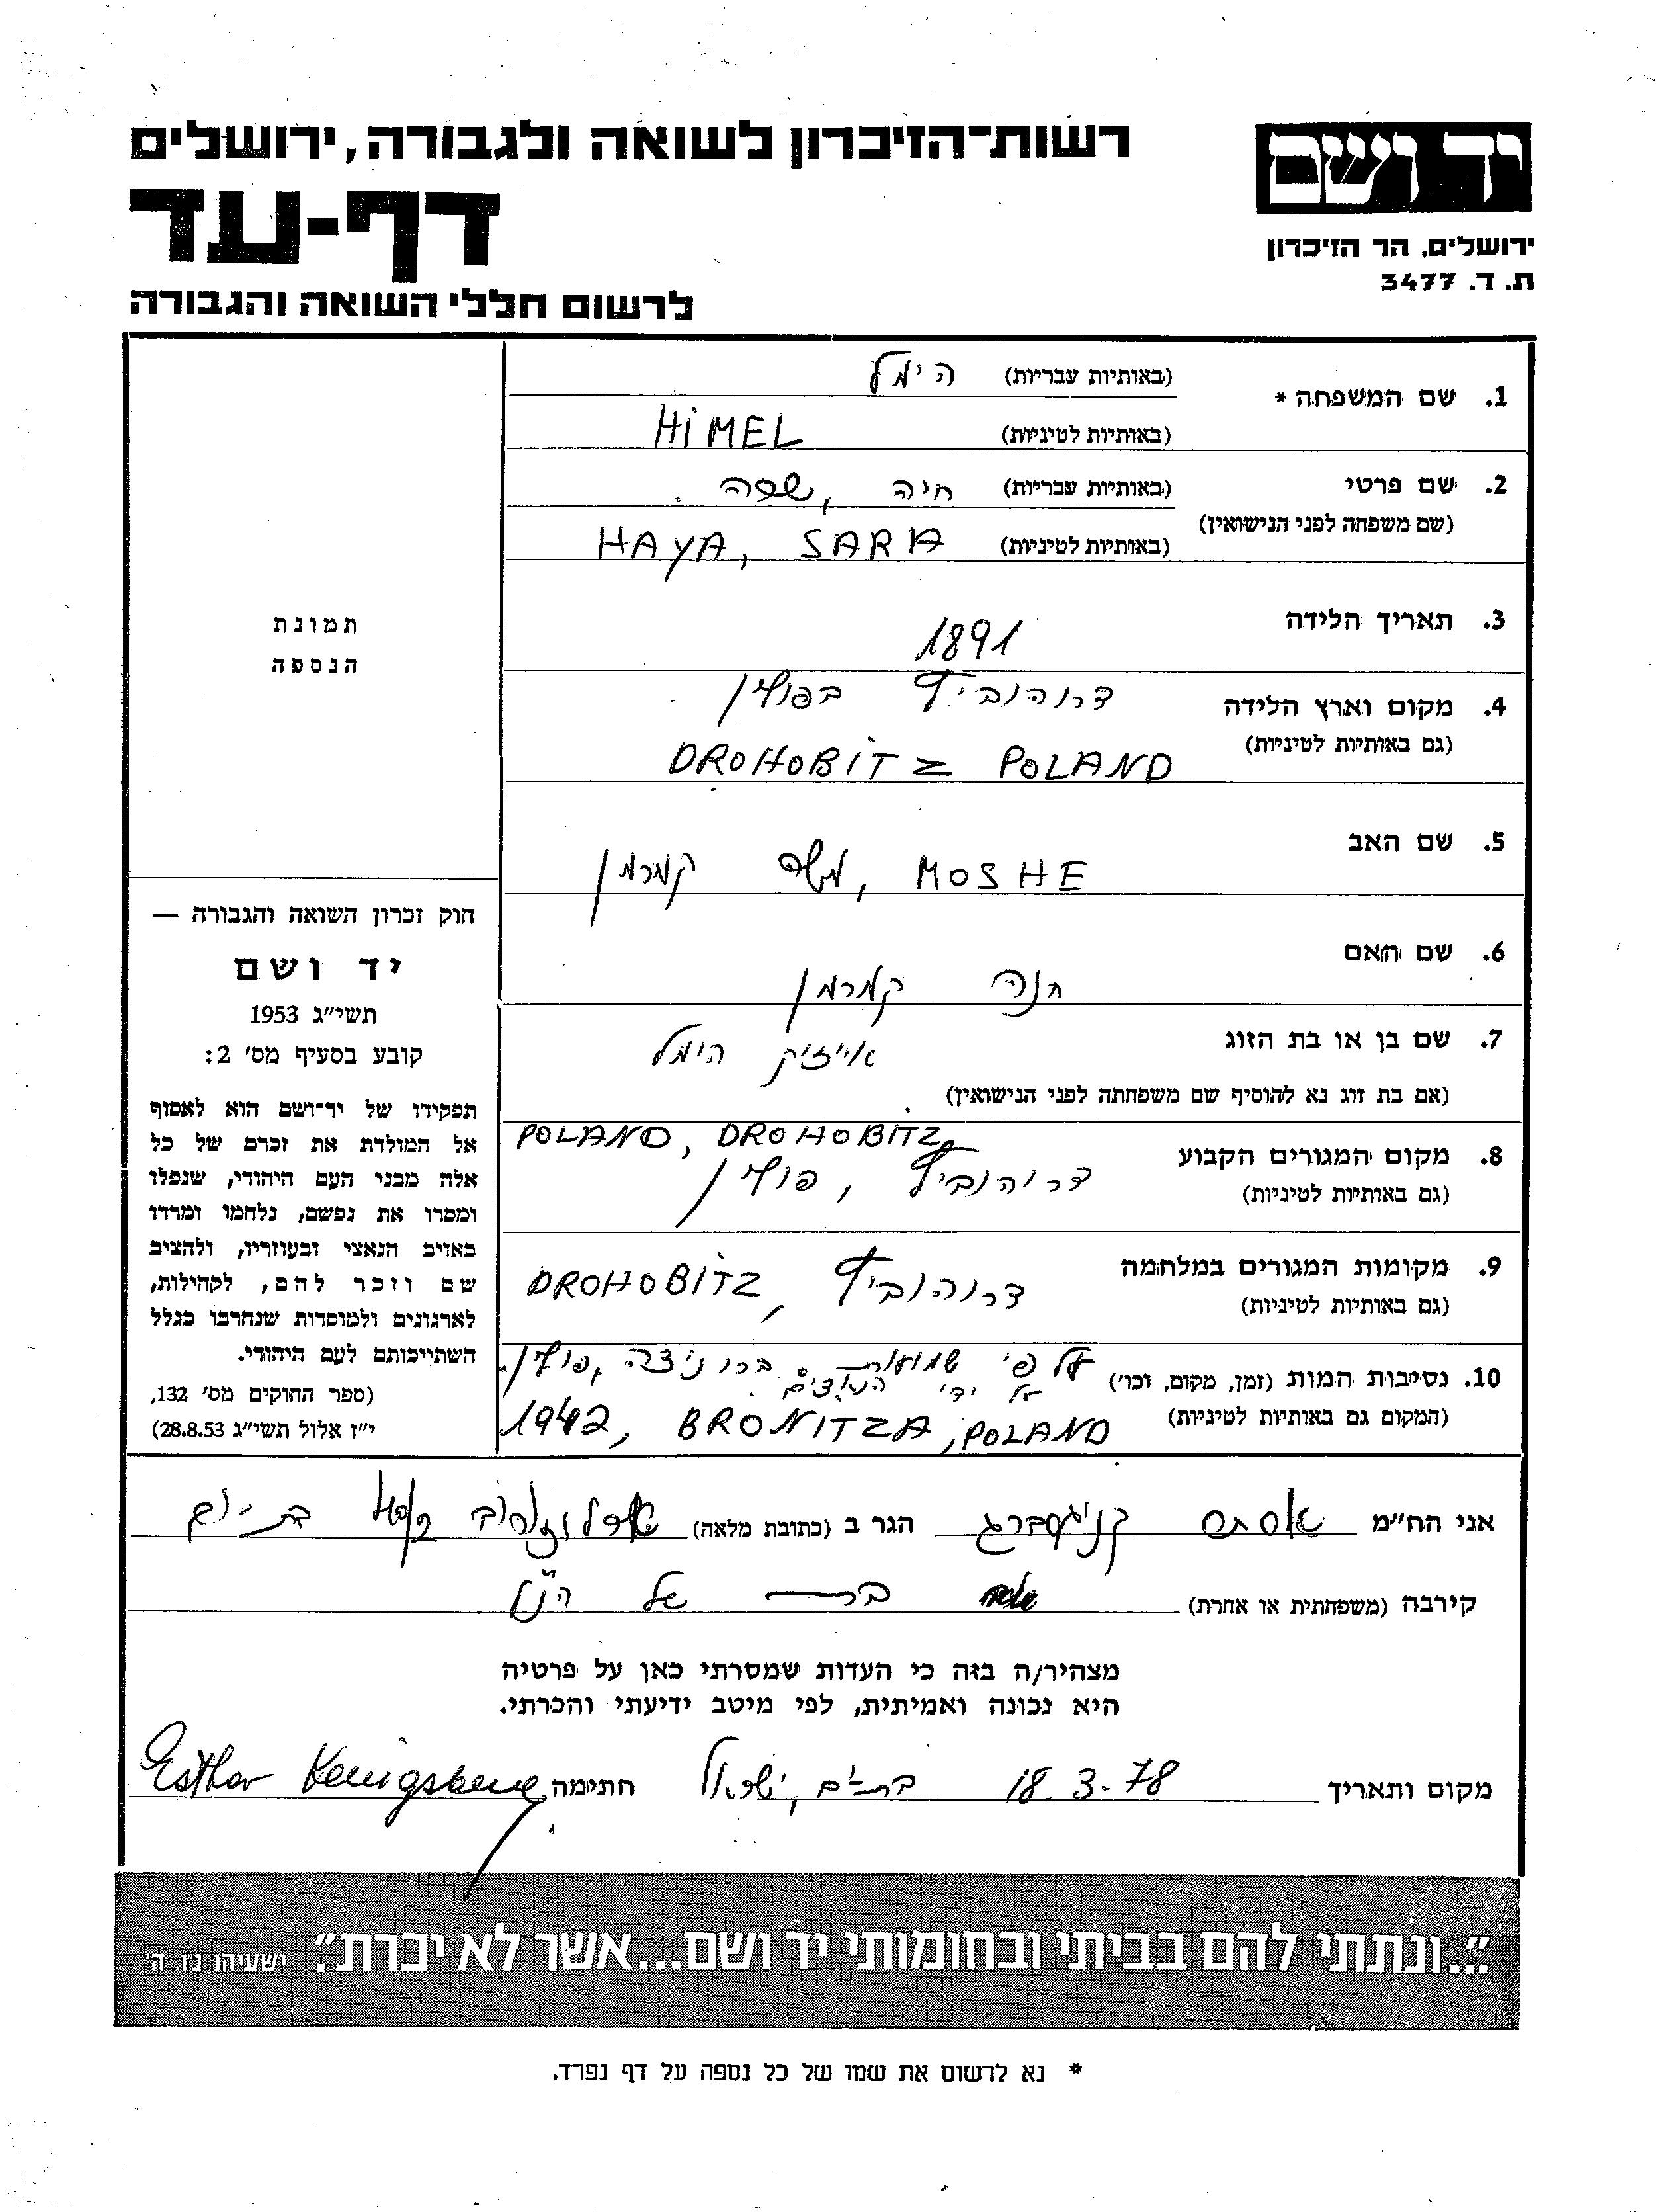 רשות־הזיכרון לשואה ולגבורה, ירושלים
יד ושם
דף-עד
ירושלים, הר הזיכרון
ת. ד. 3477
לרשום חללי השואה והגבורה
1. שם המשפחה * (באותיות עבריות) הימל
(באותיות לטיניות) HiMEL
2. שם פרטי (באותיות עבריות) חיה, שרה.
(שם משפחה לפני הנישואין)
(באותיות לטיניות) HAYA, SARA
3. תאריך הלידה 1891
4. מקום וארץ הלידה דרוהוביץ בפולין
(גם באותיות לטיניות) DROHOBITZ POLAND
5. שם האב MOSHE, משה קמרמן
6. שם האם חנה קמרמן
7. שם בן או בת הזוג אייזיק הימל
(אם בת זוג נא להוסיף שם משפחתה לפני הנישואין)
8. מקום המגורים הקבוע POLAND, DROHOBITZ
(גם באותיות לטיניות) דרוהוביץ, פולין
9. מקומות המגורים במלחמה דרוהוביץ, DROHOBITZ
(גם באותיות לטיניות)
10. נסיבות המות (זמן, מקום, וכו') על פי שמועות ברוניצה, פולין.
על ידי הנאצים
(המקום גם באותיות לטיניות) 1942, BRONITZA, POLAND
תמונת
הנספה
חוק זכרון השואה והגבורה —
יד ושם
תשי״ג 1953
קובע בסעיף מס' 2:
תפקידו של יד־ושם הוא לאסוף
אל המולדת את זכרם של כל
אלה מבני העם היהודי, שנפלו
ומסרו את נפשם, נלחמו ומרדו
באויב הנאצי ובעוזריו, ולהציב
שם וזכר להם, לקהילות,
לארגונים ולמוסדות שנחרבו בגלל
השתייכותם לעם היהודי.
(ספר החוקים מס' 132,
י״ז אלול תשי״ג 28.8.53)
אני הח״מ אסתר קניגסברג הגר ב (כתובת מלאה) בת-ים
קירבה (משפחתית או אחרת) בת של הנ״ל
מצהיר/ה בזה כי העדות שמסרתי כאן על פרטיה
היא נכונה ואמיתית, לפי מיטב ידיעתי והכרתי.
מקום ותאריך 18.3.78 בת-ים, ישראל חתימה Esther Kenigsberg
״...ונתתי להם בביתי ובחומותי יד ושם...אשר לא יכרת״. ישעיהו נו, ה'
* נא לרשום את שמו של כל נספה על דף נפרד.